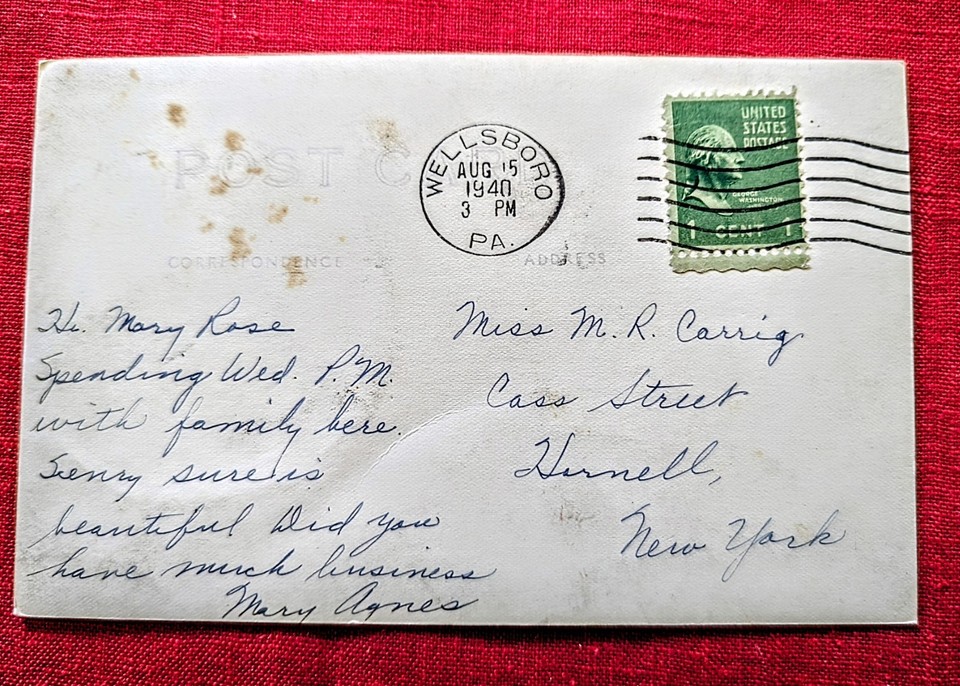 POST CARD
WELLSBORO
AUG 15
1940
3 PM
PA.
UNITED
STATES
POSTAGE
GEORGE
WASHINGTON
1 CENT 1
CORRESPONDENCE
ADDRESS
Hi. Mary Rose
Spending Wed. P.M.
with family here.
Senry sure is
beautiful Did you
have much business
Mary Agnes
Miss M. R. Carrig
Cass Street
Hornell,
New York